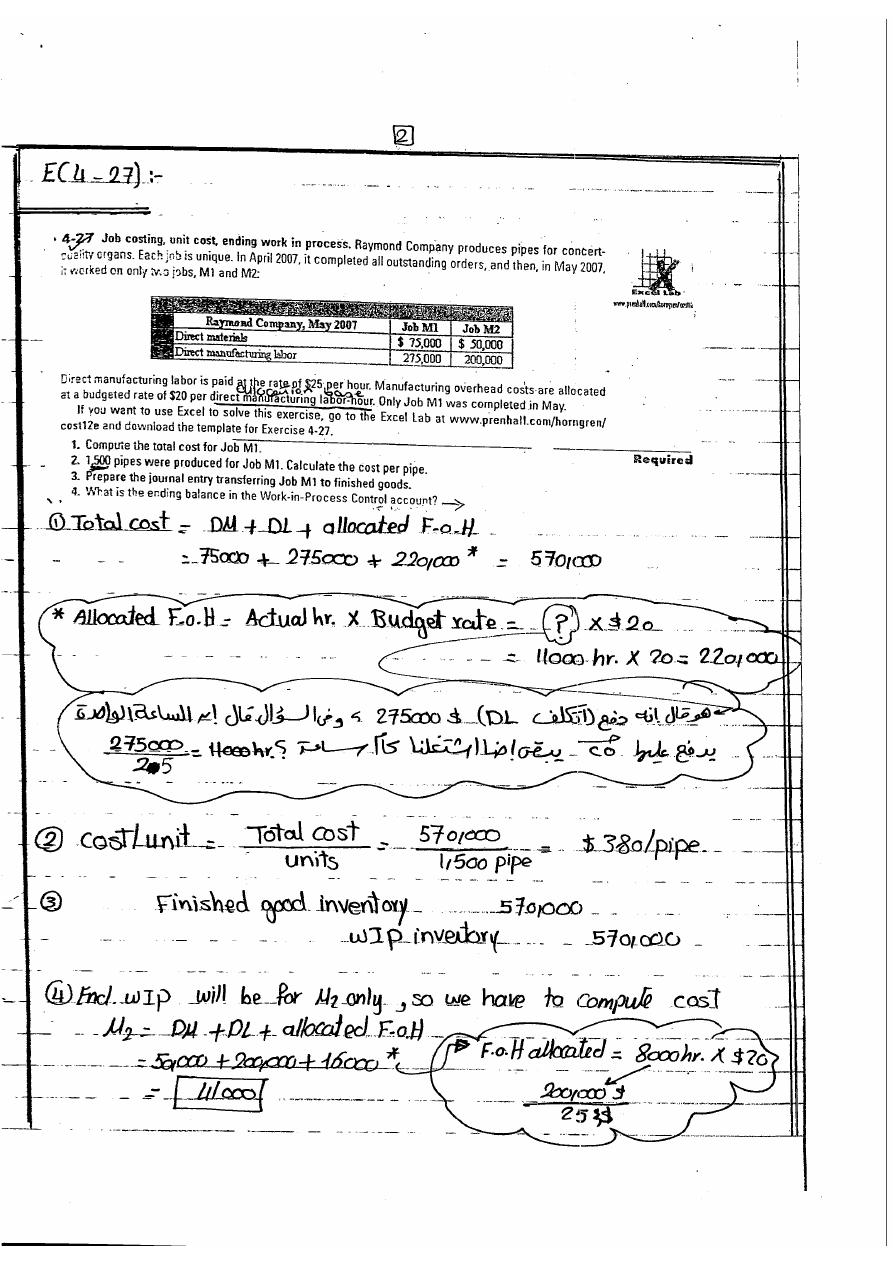 2
E(4-27):-
4-27 Job costing, unit cost, ending work in process. Raymond Company produces pipes for concert-
quality organs. Each job is unique. In April 2007, it completed all outstanding orders, and then, in May 2007,
it worked on only two jobs, M1 and M2:
Excel Lab
Raymond Company, May 2007 Job M1 Job M2
Direct materials $ 75,000 $ 50,000
Direct manufacturing labor 275,000 200,000
Direct manufacturing labor is paid at the rate of $25 per hour. Manufacturing overhead costs are allocated
at a budgeted rate of $20 per direct manufacturing labor-hour. Only Job M1 was completed in May.
If you want to use Excel to solve this exercise, go to the Excel Lab at www.prenhall.com/horngren/
cost12e and download the template for Exercise 4-27.
1. Compute the total cost for Job M1.
Required
2. 1,500 pipes were produced for Job M1. Calculate the cost per pipe.
3. Prepare the journal entry transferring Job M1 to finished goods.
4. What is the ending balance in the Work-in-Process Control account? →
① Total cost = DM + DL + allocated F.o.H
= 75000 + 275000 + 220,000 * = 570,000
* Allocated F.o.H = Actual hr. X Budget rate = ? X $20
= 11000 hr. X 20 = 220,000
هو قال انه دفع (التكلف DL) $ 275000 و في السؤال قال ان الساعة الواحدة
يدفع عليها
275000
= 11000 hr.
25
② Cost/unit = Total cost = 570,000 = $ 380/pipe
units 1,500 pipe
③ Finished good inventory 570,000
WIP inventory 570,000
④ End WIP will be for M2 only, so we have to compute cost
M2 = DM + DL + allocated F.o.H
= 50,000 + 200,000 + 16000 *
= 41000
F.o.H allocated = 8000 hr. X $20
200,000 $
25 $